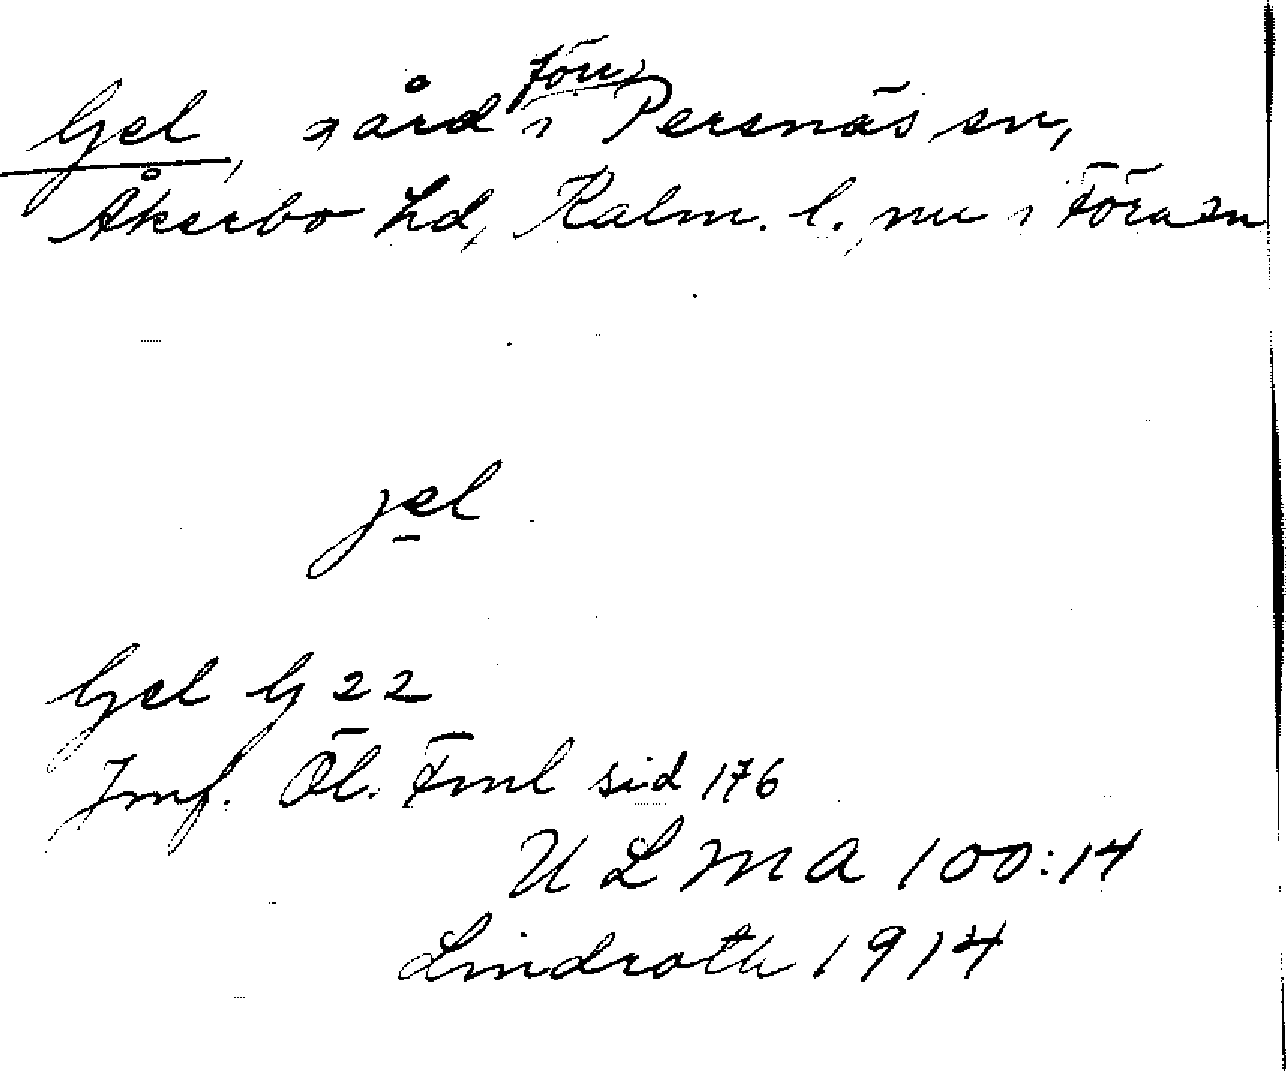 Gel, gård i förr Persnäs sn,
Åkerbo hd, Kalm. l., nu i Föra sn
jel
Gel G 22
Jmf. Öl. Fml sid 176
ULMA 100:14
Lindroth 1914